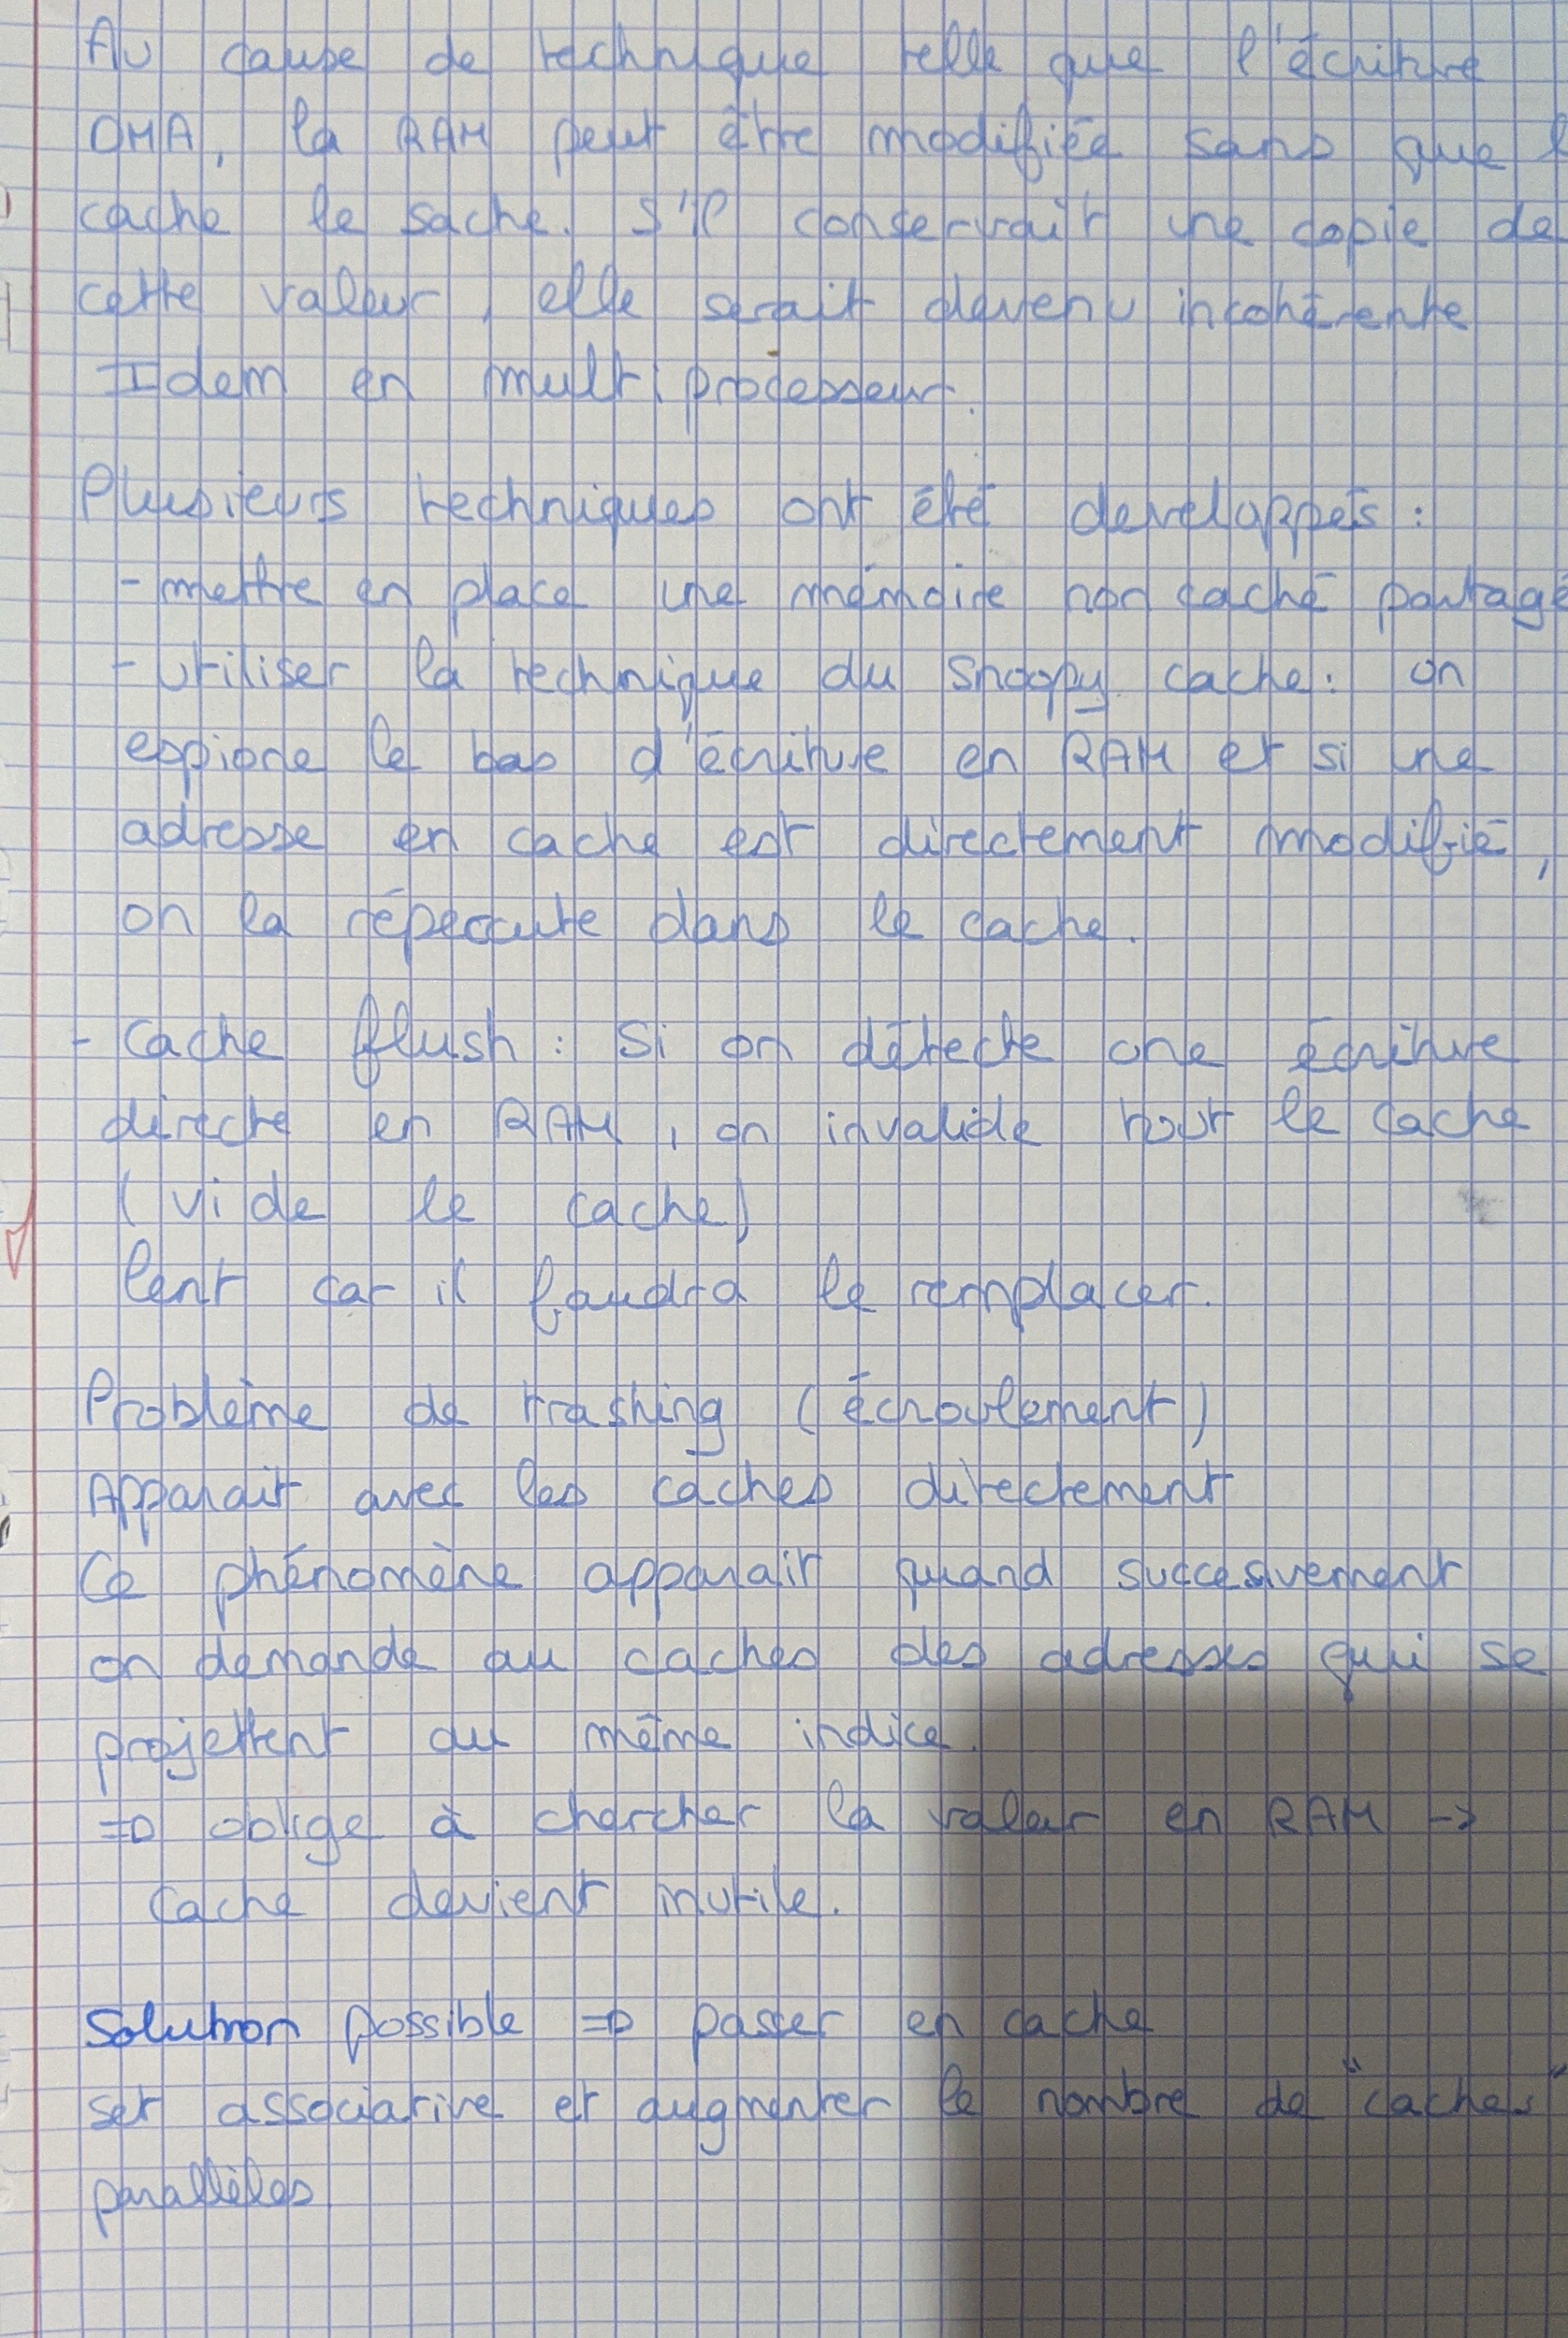 Au cause de technique telle que l'écriture
DMA, la RAM peut être modifiée sans que l
cache le sache. S'il conservait une copie de
cette valeur, elle serait devenu incohérente
Idem en multiprocesseur.
Plusieurs techniques ont été developpés :
- mettre en place une mémoire non caché partagé
- utiliser la technique du snoopy cache : on
espione le bus d'écriture en RAM et si une
adresse en cache est directement modifié,
on la répecute dans le cache.
- Cache flush : Si on détecte une écriture
directe en RAM, on invalide tout le cache
(vide le cache)
lent car il faudra le remplacer.
Problème de trashing (écroulement)
Apparait avec les caches directement
Ce phénomène apparait quand succesivement
on demande au caches des adresses qui se
projettent au même indice.
=> oblige à chercher la valeur en RAM ->
cache devient inutile.
Solution possible => passer en cache
set associative et augmenter le nombre de "caches"
parallèles